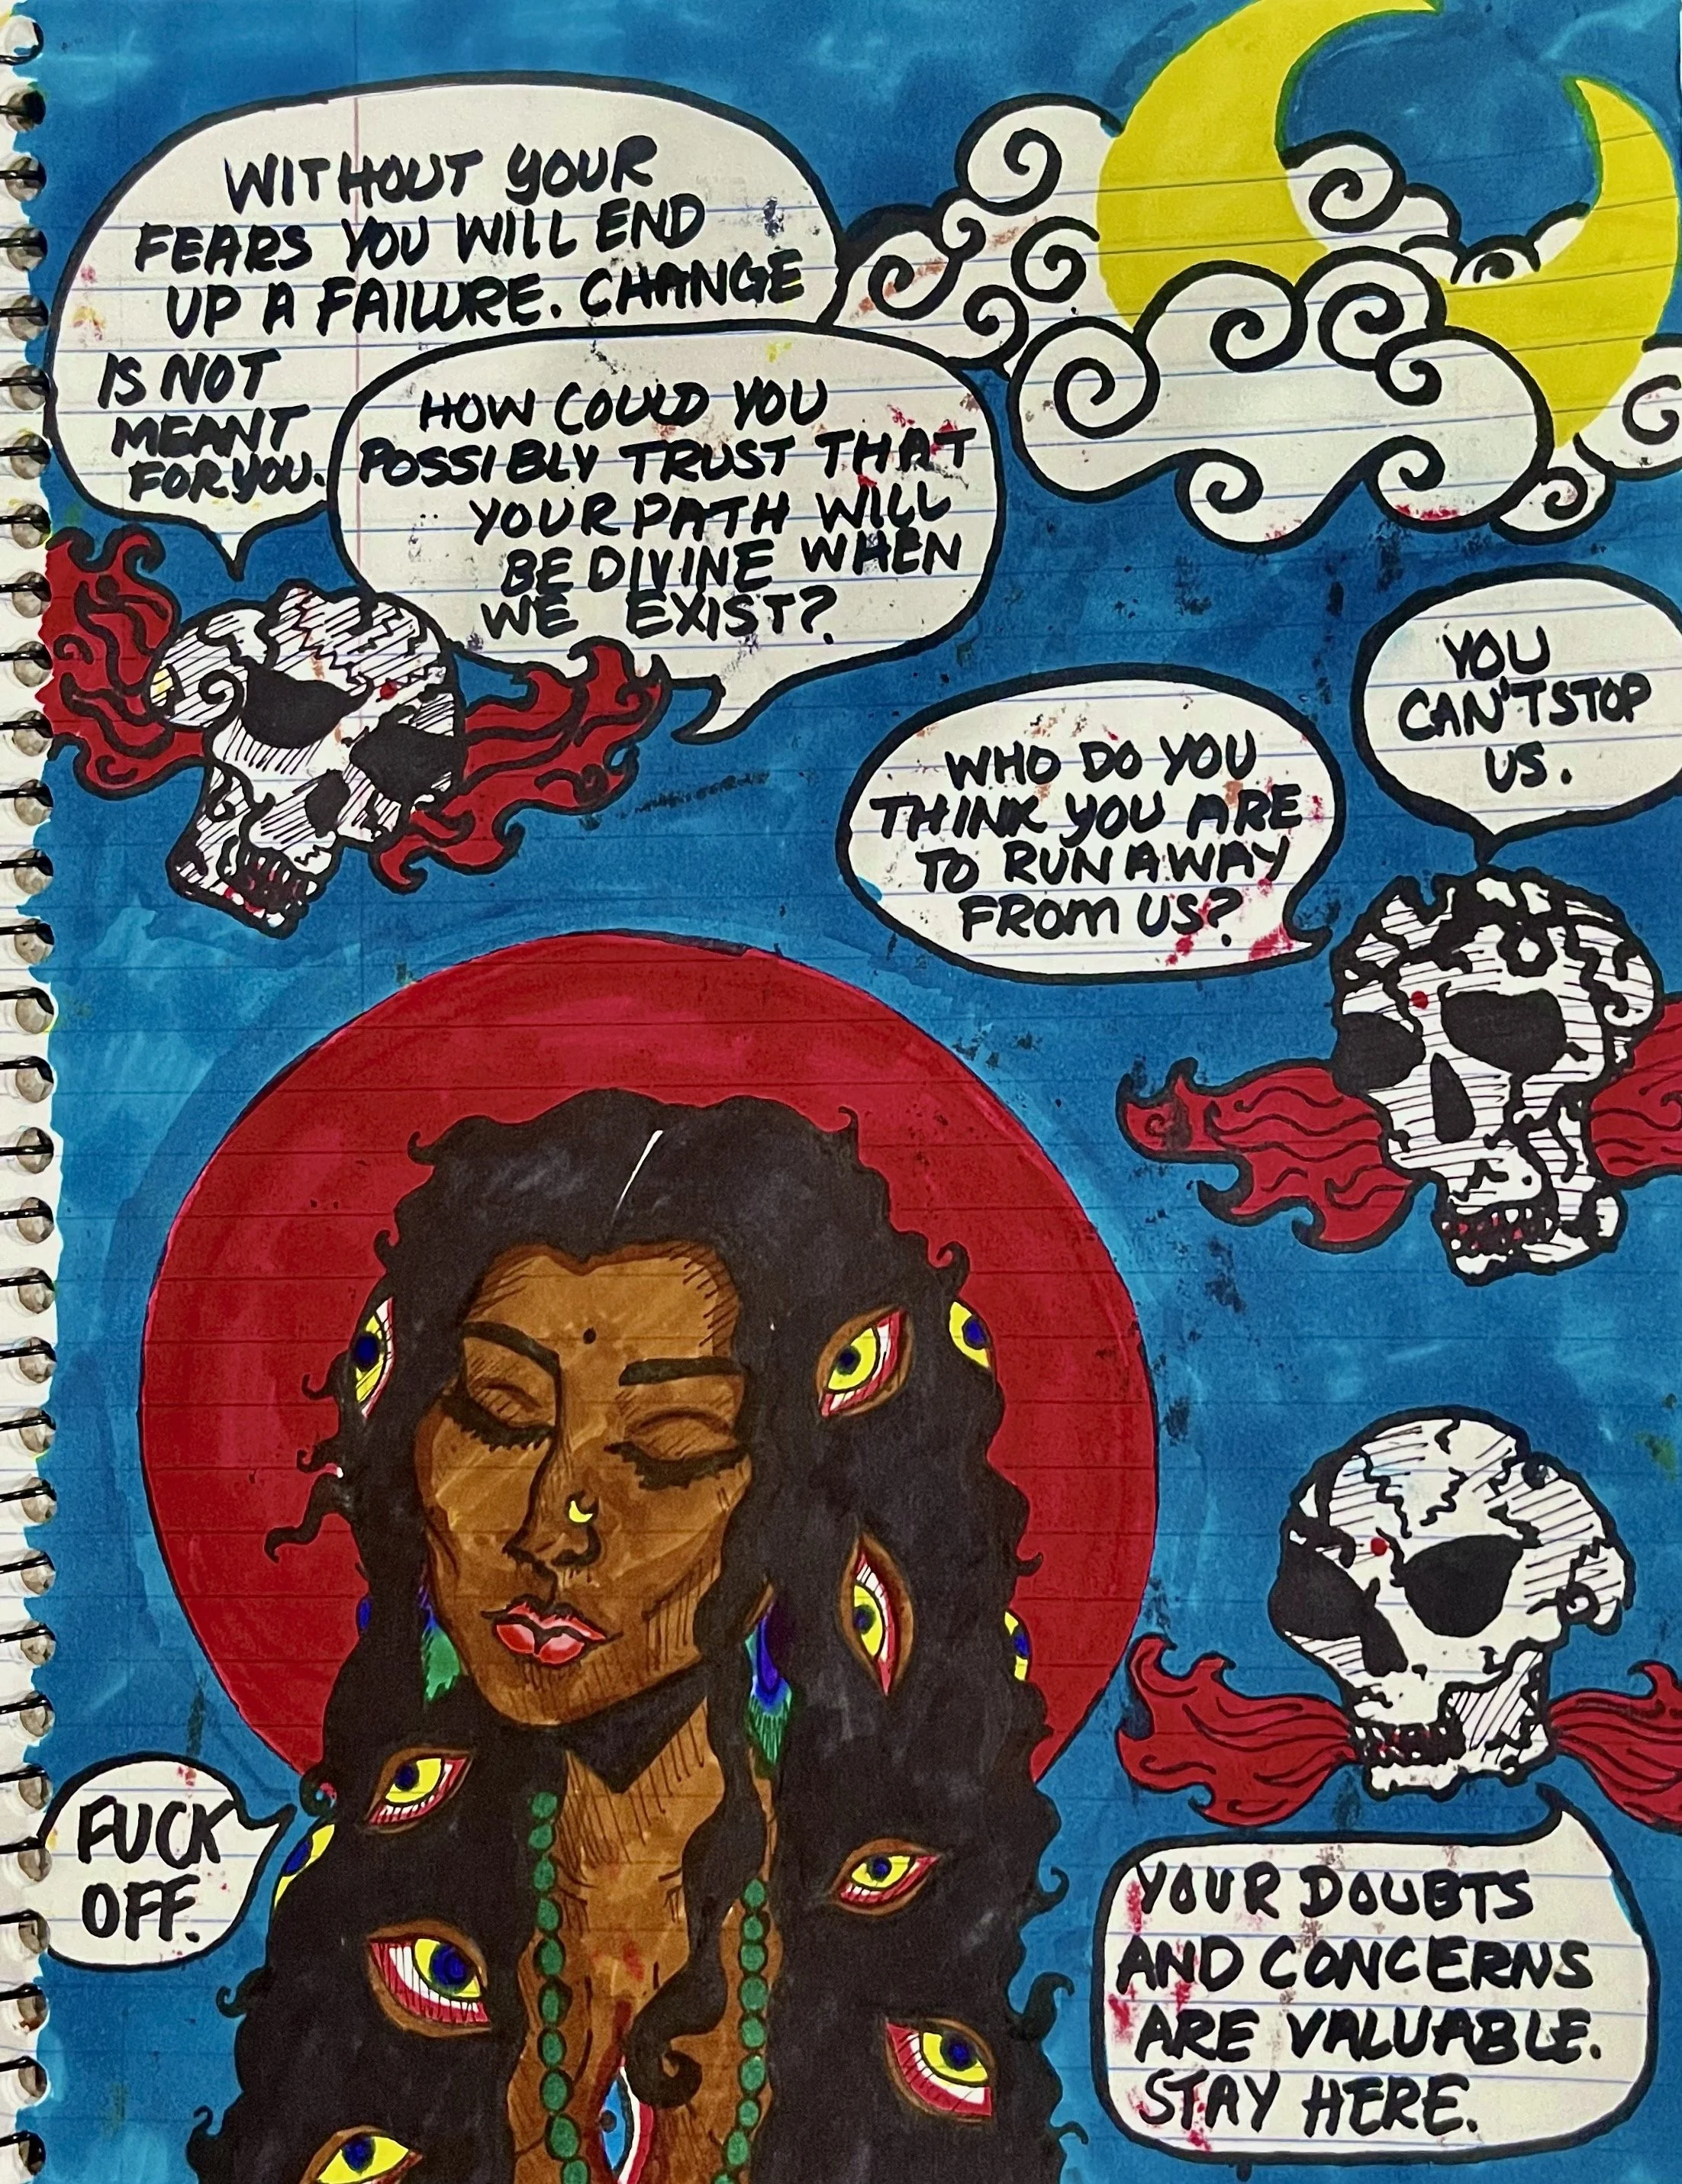 WITHOUT YOUR
FEARS YOU WILL END
UP A FAILURE. CHANGE
IS NOT
MEANT
FOR YOU.
HOW COULD YOU
POSSIBLY TRUST THAT
YOUR PATH WILL
BE DIVINE WHEN
WE EXIST?
YOU
CAN'T STOP
US.
WHO DO YOU
THINK YOU ARE
TO RUN AWAY
FROM US?
FUCK
OFF.
YOUR DOUBTS
AND CONCERNS
ARE VALUABLE.
STAY HERE.